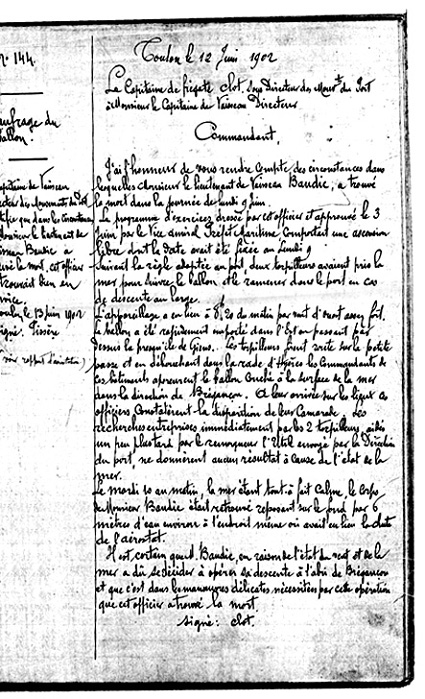 N° 144
aufrage du
allon.
apitaine de Vaisseau
ecteur des Mouvements du Port
tifie que dans les circonstances
Monsieur le Lieutenant de
isseau Baudic a
uvé la mort, cet officier
trouvait bien en
vice.
oulon le 13 juin 1902
igné : Pissère
(voir rapport d'aviation)
Toulon le 12 Juin 1902
Le Capitaine de frégate Clot, Sous Directeur des Mouvts du Port
à Monsieur le Capitaine de Vaisseau Directeur
Commandant,
J'ai l'honneur de vous rendre compte des circonstances dans
lesquelles Monsieur le Lieutenant de Vaisseau Baudic, a trouvé
la mort dans la journée de lundi 9 juin.
Le programme d'exercices dressé par cet officier et approuvé le 3
Juin par le Vice amiral Préfet Maritime comportait une ascension
libre dont la date avait été fixée au Lundi 9
Suivant la règle adoptée au port, deux torpilleurs avaient pris la
mer pour suivre le ballon et le ramener dans le port en cas
de descente au large.
L'appareillage a eu lieu à 8h20 du matin par vent d'ouest assez fort.
Le ballon a été rapidement emporté dans l'Est en passant par
dessus la presqu'île de Giens. Les torpilleurs firent route sur la petite
passe et en débouchant dans la rade d'Hyères les Commandants de
ces bâtiments aperçurent le ballon couché à la surface de la mer
dans la direction de Brégançon. A leur arrivée sur les lieux ces
officiers constatèrent la disparition de leur Camarade. Les
recherches entreprises immédiatement par les 2 torpilleurs, aidés
un peu plus tard par le remorqueur l'Utile envoyé par la Direction
du port, ne donnèrent aucun résultat à cause de l'état de la
mer.
Le mardi 10 au matin, la mer étant tout-à-fait calme, le corps
de Monsieur Baudic était retrouvé reposant sur le fond par 6
mètres d'eau environ à l'endroit même où avait eu lieu la chute
de l'aérostat.
Il est certain que M. Baudic, en raison de l'état du vent et de la
mer a dû se décider à opérer sa descente à l'abri de Brégançon
et que c'est dans les manœuvres délicates nécessitées par cette opération
que cet officier a trouvé la mort.
Signé : Clot.